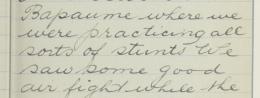 Bapaume where we
were practicing all
sorts of stunts We
saw some good
air fight while the